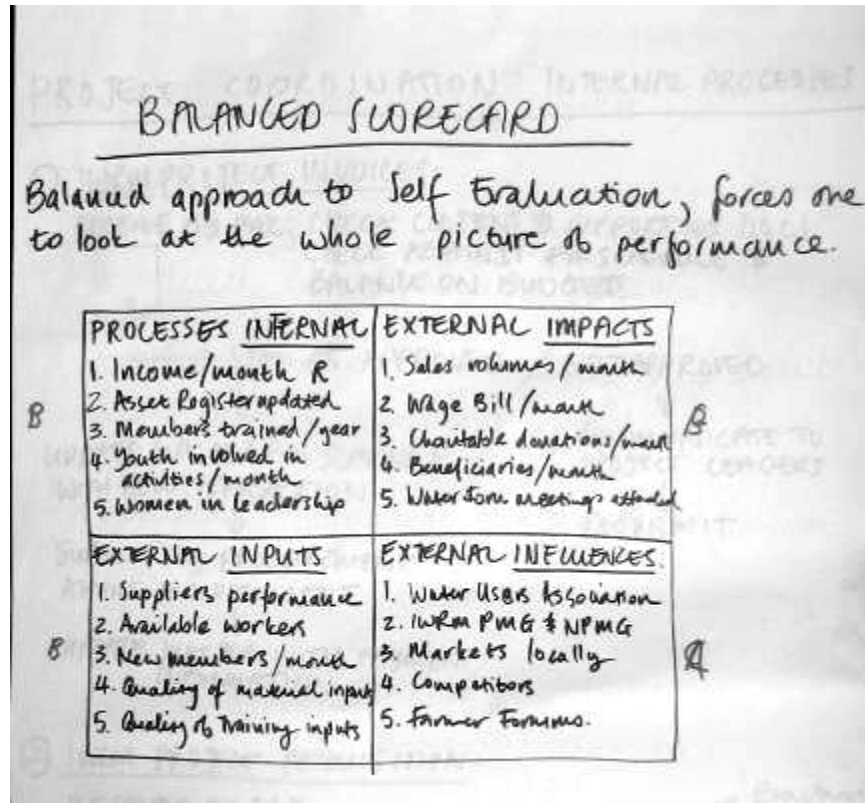 BALANCED SCORECARD
Balanced approach to Self Evaluation, forces one
to look at the whole picture of performance.
PROCESSES INTERNAL
1. Income/month R
2. Asset Register updated
3. Members trained/year
4. Youth involved in
activities/month
5. Women in leadership
B
EXTERNAL IMPACTS
1. Sales volumes/month
2. Wage Bill/month
3. Charitable donations/month
4. Beneficiaries/month
5. Water meetings attended
B
EXTERNAL INPUTS
1. Suppliers performance
2. Available workers
3. New members/month
4. Quality of material inputs
5. Quality of Training inputs
B
EXTERNAL INFLUENCES.
1. Water Users Association
2. IWRM PMG & NPMG
3. Markets locally
4. Competitors
5. Farmer Forums.
PROJECT COORDINATION INTERNAL PROCESSES